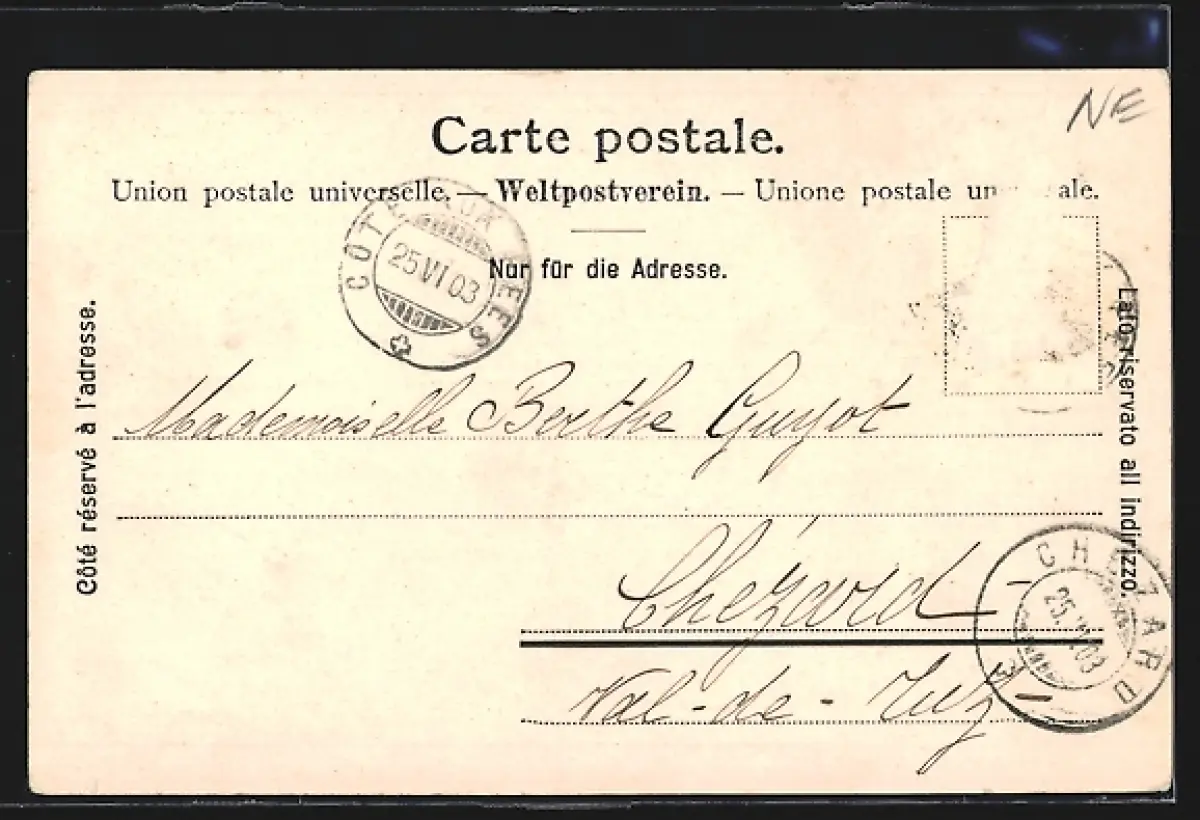 NE
Carte postale.
Union postale universelle. — Weltpostverein. — Unione postale un ale.
Nur für die Adresse.
25 VI 03
Côté réservé à l'adresse.
Lato riservato all indirizzo.
Mademoiselle Berthe Guyot
Chézard
Val-de-Ruz
CHÉZARD
25. VI 03